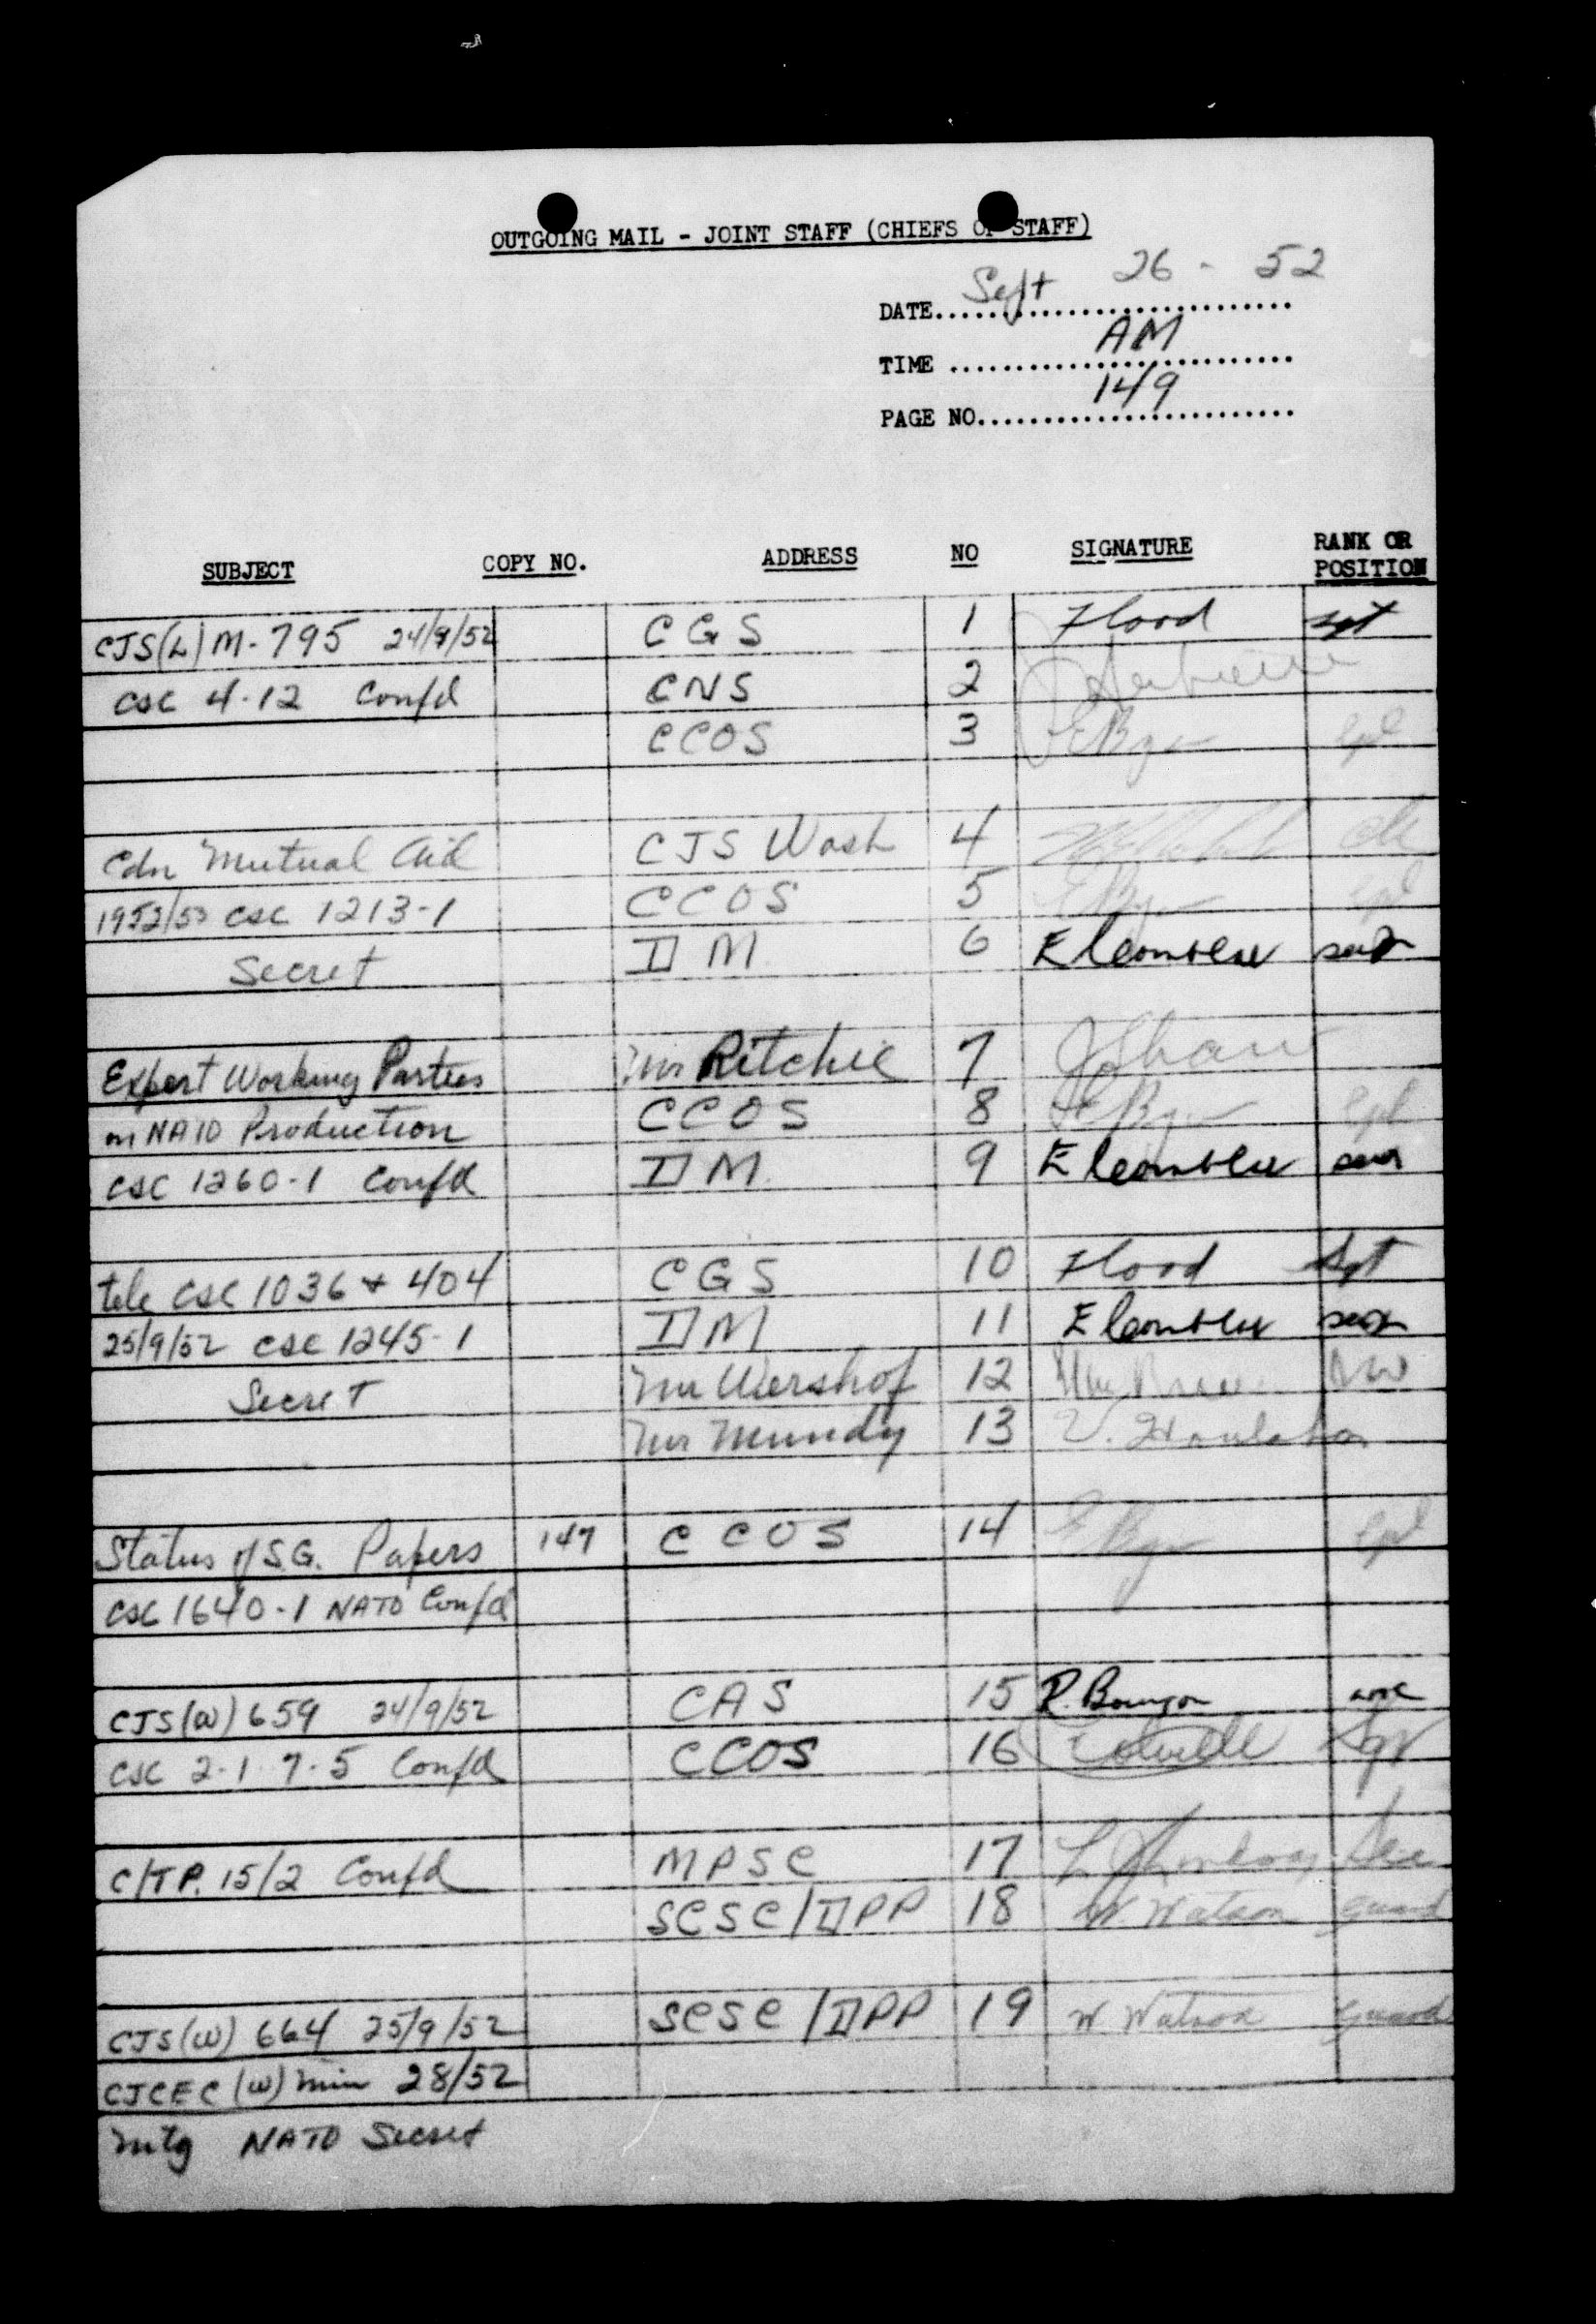 OUTGOING MAIL - JOINT STAFF (CHIEFS OF STAFF)
DATE Sept 26 - 52
TIME AM
PAGE NO. 149
SUBJECT COPY NO. ADDRESS NO SIGNATURE RANK OR POSITION
CJS(L) M-795 24/9/52 CGS 1 Flood Sgt
CSC 4-12 Confd CNS 2
CCOS 3 Cpl
Cdn Mutual Aid CJS Wash 4
1952/53 CSC 1213-1 CCOS 5 Cpl
Secret DM 6
Expert Working Parties Mr Ritchie 7 J Shaw
on NATO Production CCOS 8 Cpl
CSC 1260-1 Confd DM 9
tele CSC 1036 + 404 CGS 10 Flood Sgt
25/9/52 CSC 1245-1 DM 11
Secret Mr Wershof 12
Mr Mundy 13 V.
Status of S.G. Papers 147 CCOS 14 Cpl
CSC 1640-1 NATO Confd
CJS(W) 659 24/9/52 CAS 15 R.
CSC 2-1-7-5 Confd CCOS 16
C/TP. 15/2 Confd MPSC 17
SCSC/DPP 18 W Watson guard
CJS(W) 664 25/9/52 SCSC/DPP 19 W Watson guard
CJCEC (W) Min 28/52
Mtg NATO Secret